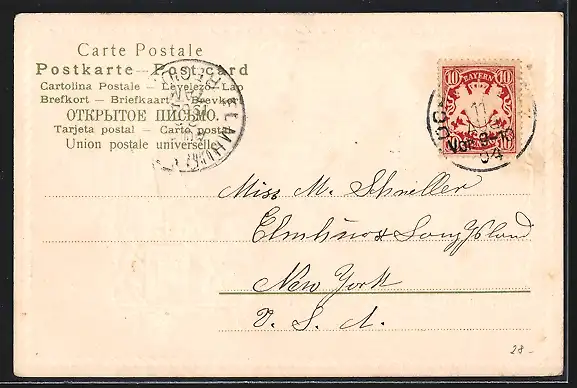 Carte Postale
Postkarte — Postcard
Cartolina Postale – Levelező-Lap
Brefkort – Briefkaart – Brevkort
ОТКРЫТОЕ ПИСЬМО.
Tarjeta postal – Carte postal
Union postale universelle
10 BAYERN 10
11
Vor. 9-10
04
ELMHURST
REC'D
Miss M. Schneller
Elmhurst Long Island
New York
U. S. A.
28-